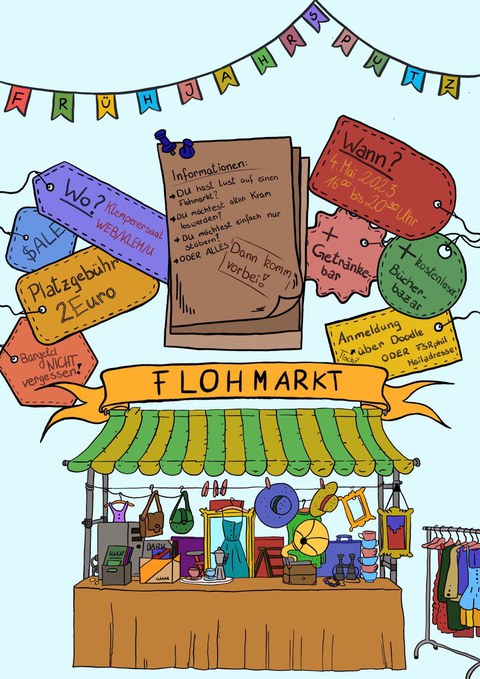 FRÜHJAHRSPUTZ
Informationen:
→ DU hast Lust auf einen
Flohmarkt?
→ DU möchtest alten Kram
loswerden?
→ DU möchtest einfach nur
stöbern?
→ ODER ALLES?
Dann komm
vorbei!
Wann?
4. Mai 2023
16⁰⁰ bis 20⁰⁰ Uhr
Wo?
Klemperersaal
WEB/KLEM/U
$ALE
Platzgebühr
2 Euro
Bargeld
NICHT
vergessen!
+
Getränke-
bar
+ kostenloser
Bücher-
bazar
Anmeldung
über Doodle
ODER FSRphil
Mailadresse!
FLOHMARKT
DARK